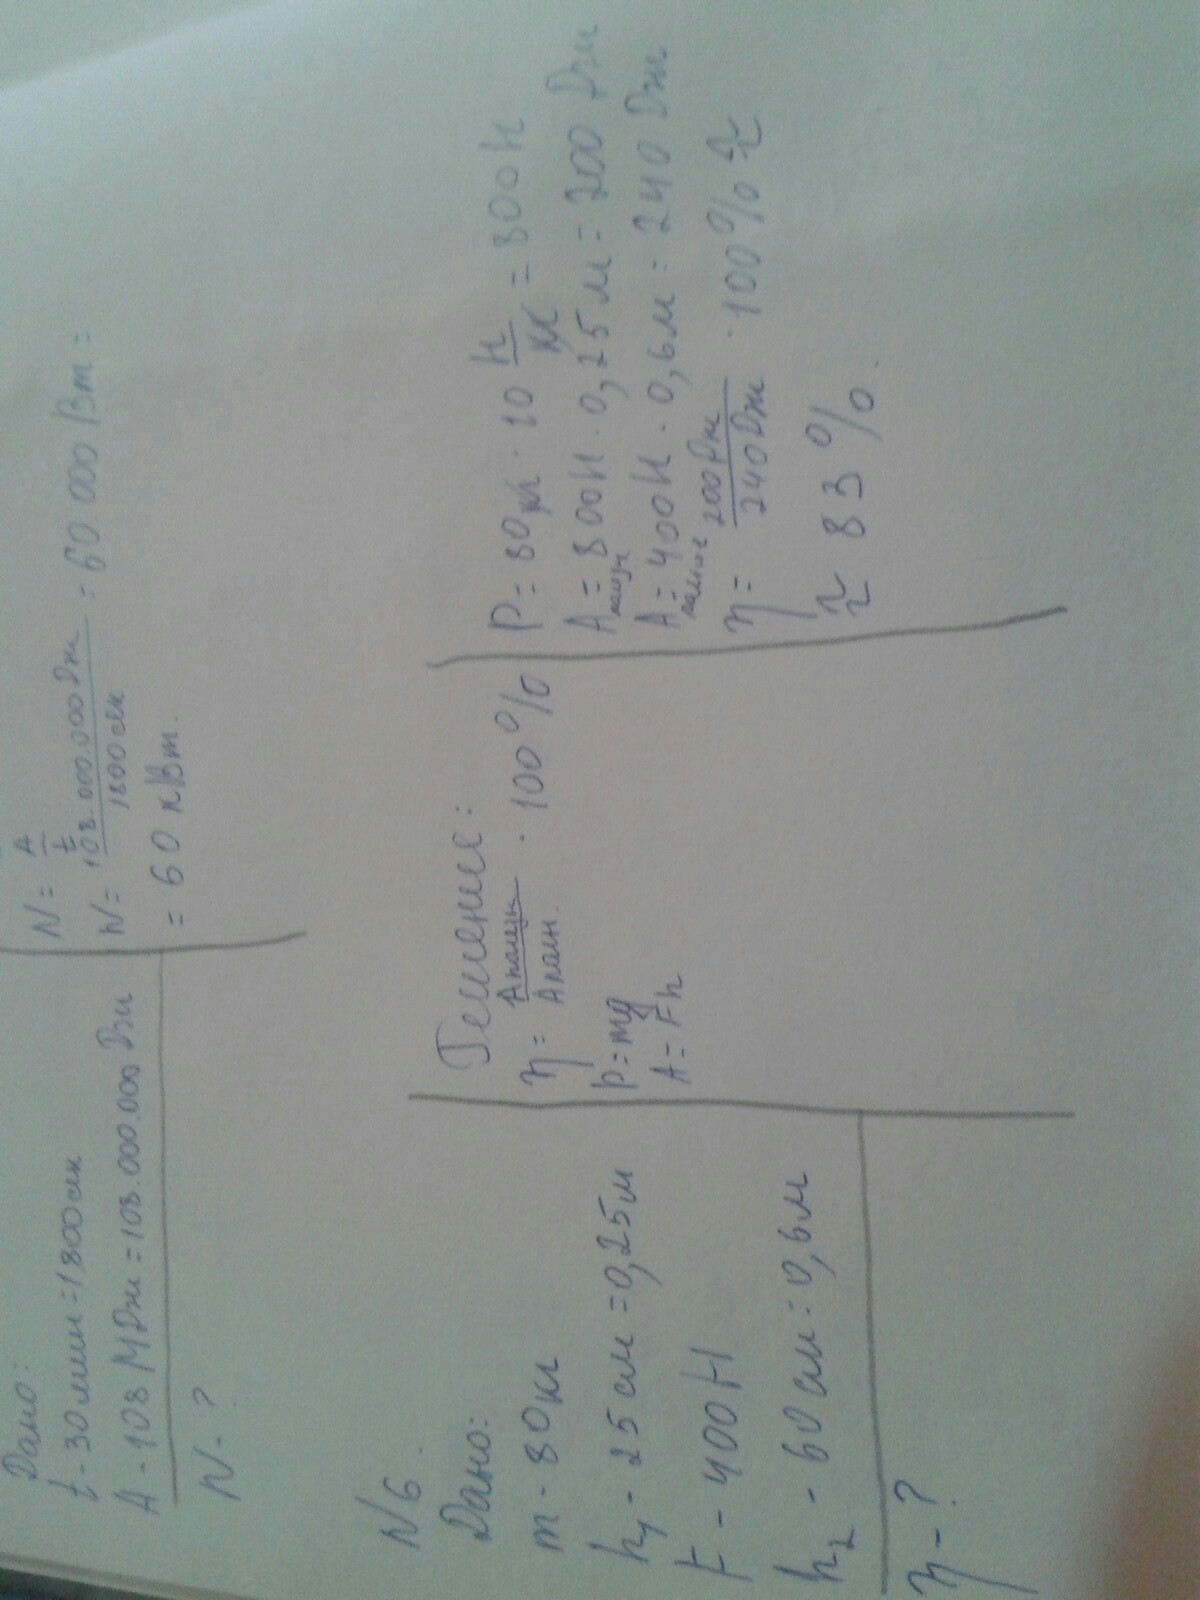 Дано:
t - 30 мин = 1800 сек
A - 108 МДж = 108.000.000 Дж
N - ?
N = A/t
N = 108.000.000 Дж / 1800 сек = 60 000 Вт =
= 60 кВт.
N 6.
Дано:
m - 80 кг
h₁ - 25 см = 0,25 м
F - 400 Н
h₂ - 60 см = 0,6 м
η - ?
Решение:
η = Aполезн / Aполн. · 100%
P = mg
A = Fh
P = 80 кг · 10 Н/кг = 800 Н
Aполезн = 800 Н · 0,25 м = 200 Дж
Aполное = 400 Н · 0,6 м = 240 Дж
η = 200 Дж / 240 Дж · 100% ≈
≈ 83%.